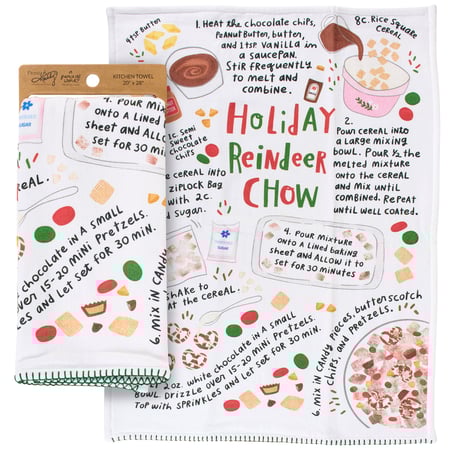 4TSP BUTTER
1. Heat the chocolate chips,
Peanut Butter, butter,
and 1 tsp Vanilla in
a saucepan.
Stir frequently
to melt and
combine.
8c. Rice Square
cereal
KITCHEN TOWEL
20" x 28"
4. Pour mix
onto a lined
sheet and allow
set for 30 min
SUGAR
1c. Semi
sweet
chocolate
chips
Holiday
Reindeer
Chow
2.
Pour cereal into
a large mixing
bowl. Pour 1/2 the
melted mixture
onto the cereal
and mix until
combined. Repeat
until well coated.
cereal into
ziplock bag
with 2c.
d sugar.
SUGAR
4. Pour mixture
onto a lined baking
sheet and allow it to
set for 30 minutes
real.
chocolate in a small
over 15-20 mini pretzels.
s and let set for 30 min.
6. Mix in candy
shake to
at the cereal.
2oz. white chocolate in a small
bowl. drizzle over 15-20 mini pretzels.
Top with sprinkles and let set for 30 min.
6. Mix in candy pieces, butterscotch
chips, and pretzels.